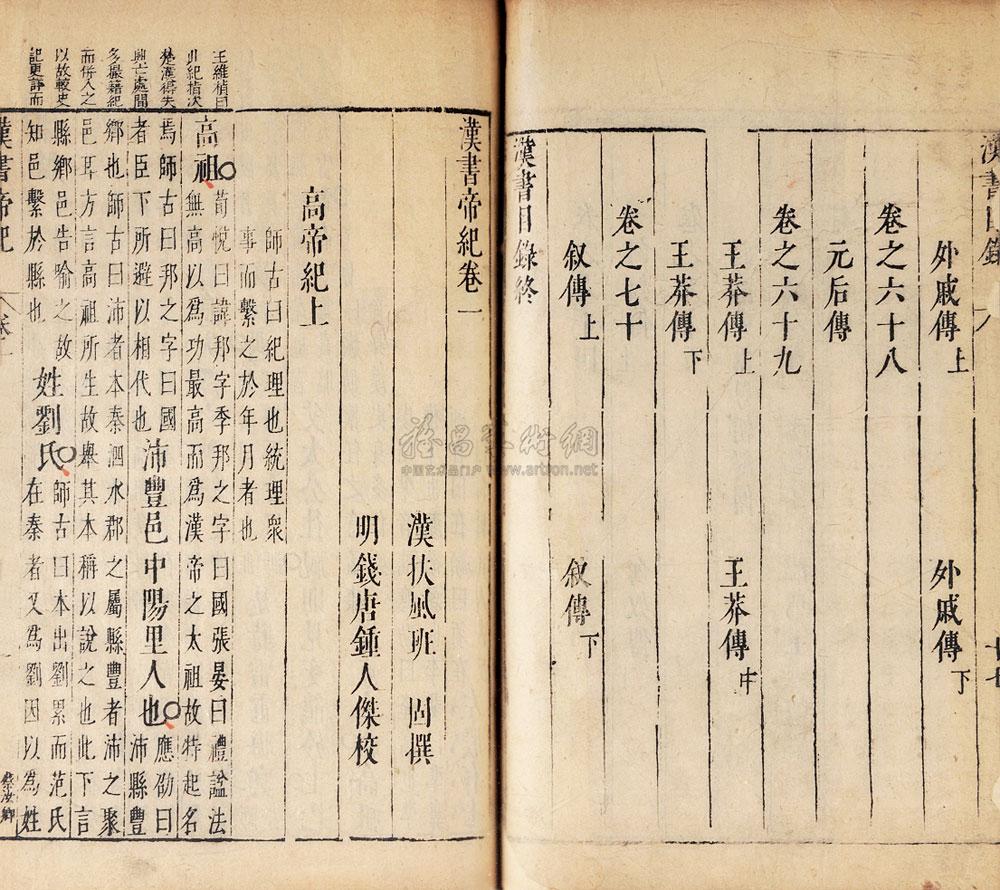 漢書目錄
十七
外戚傳上
外戚傳下
卷之六十八
元后傳
卷之六十九
王莽傳上
王莽傳中
王莽傳下
卷之七十
叙傳上
叙傳下
漢書目錄終
漢書帝紀卷一
漢扶風班固撰
明錢唐鍾人傑校
高帝紀上
師古曰紀理也統理衆
事而繫之於年月者也
王維楨曰
此紀楷次
楚漢得失
興亡處間
多撮藉紀
而併入之
以故較史
記更詳而
高祖
荀悅曰諱邦字季邦之字曰國張晏曰禮謚法
無高以爲功最高而爲漢帝之太祖故特起名
焉師古曰邦之字曰國
者臣下所避以相代也
沛豐邑中陽里人也
應劭曰
沛縣豐
鄉也師古曰沛者本秦泗水郡之屬縣豐者沛之聚
邑耳方言高祖所生故舉其本稱以說之也此下言
縣鄉邑告喻之故
知邑繫於縣也
姓劉氏
師古曰本出劉累而范氏
在秦者又爲劉因以爲姓
漢書帝紀
卷一
www.artron.net